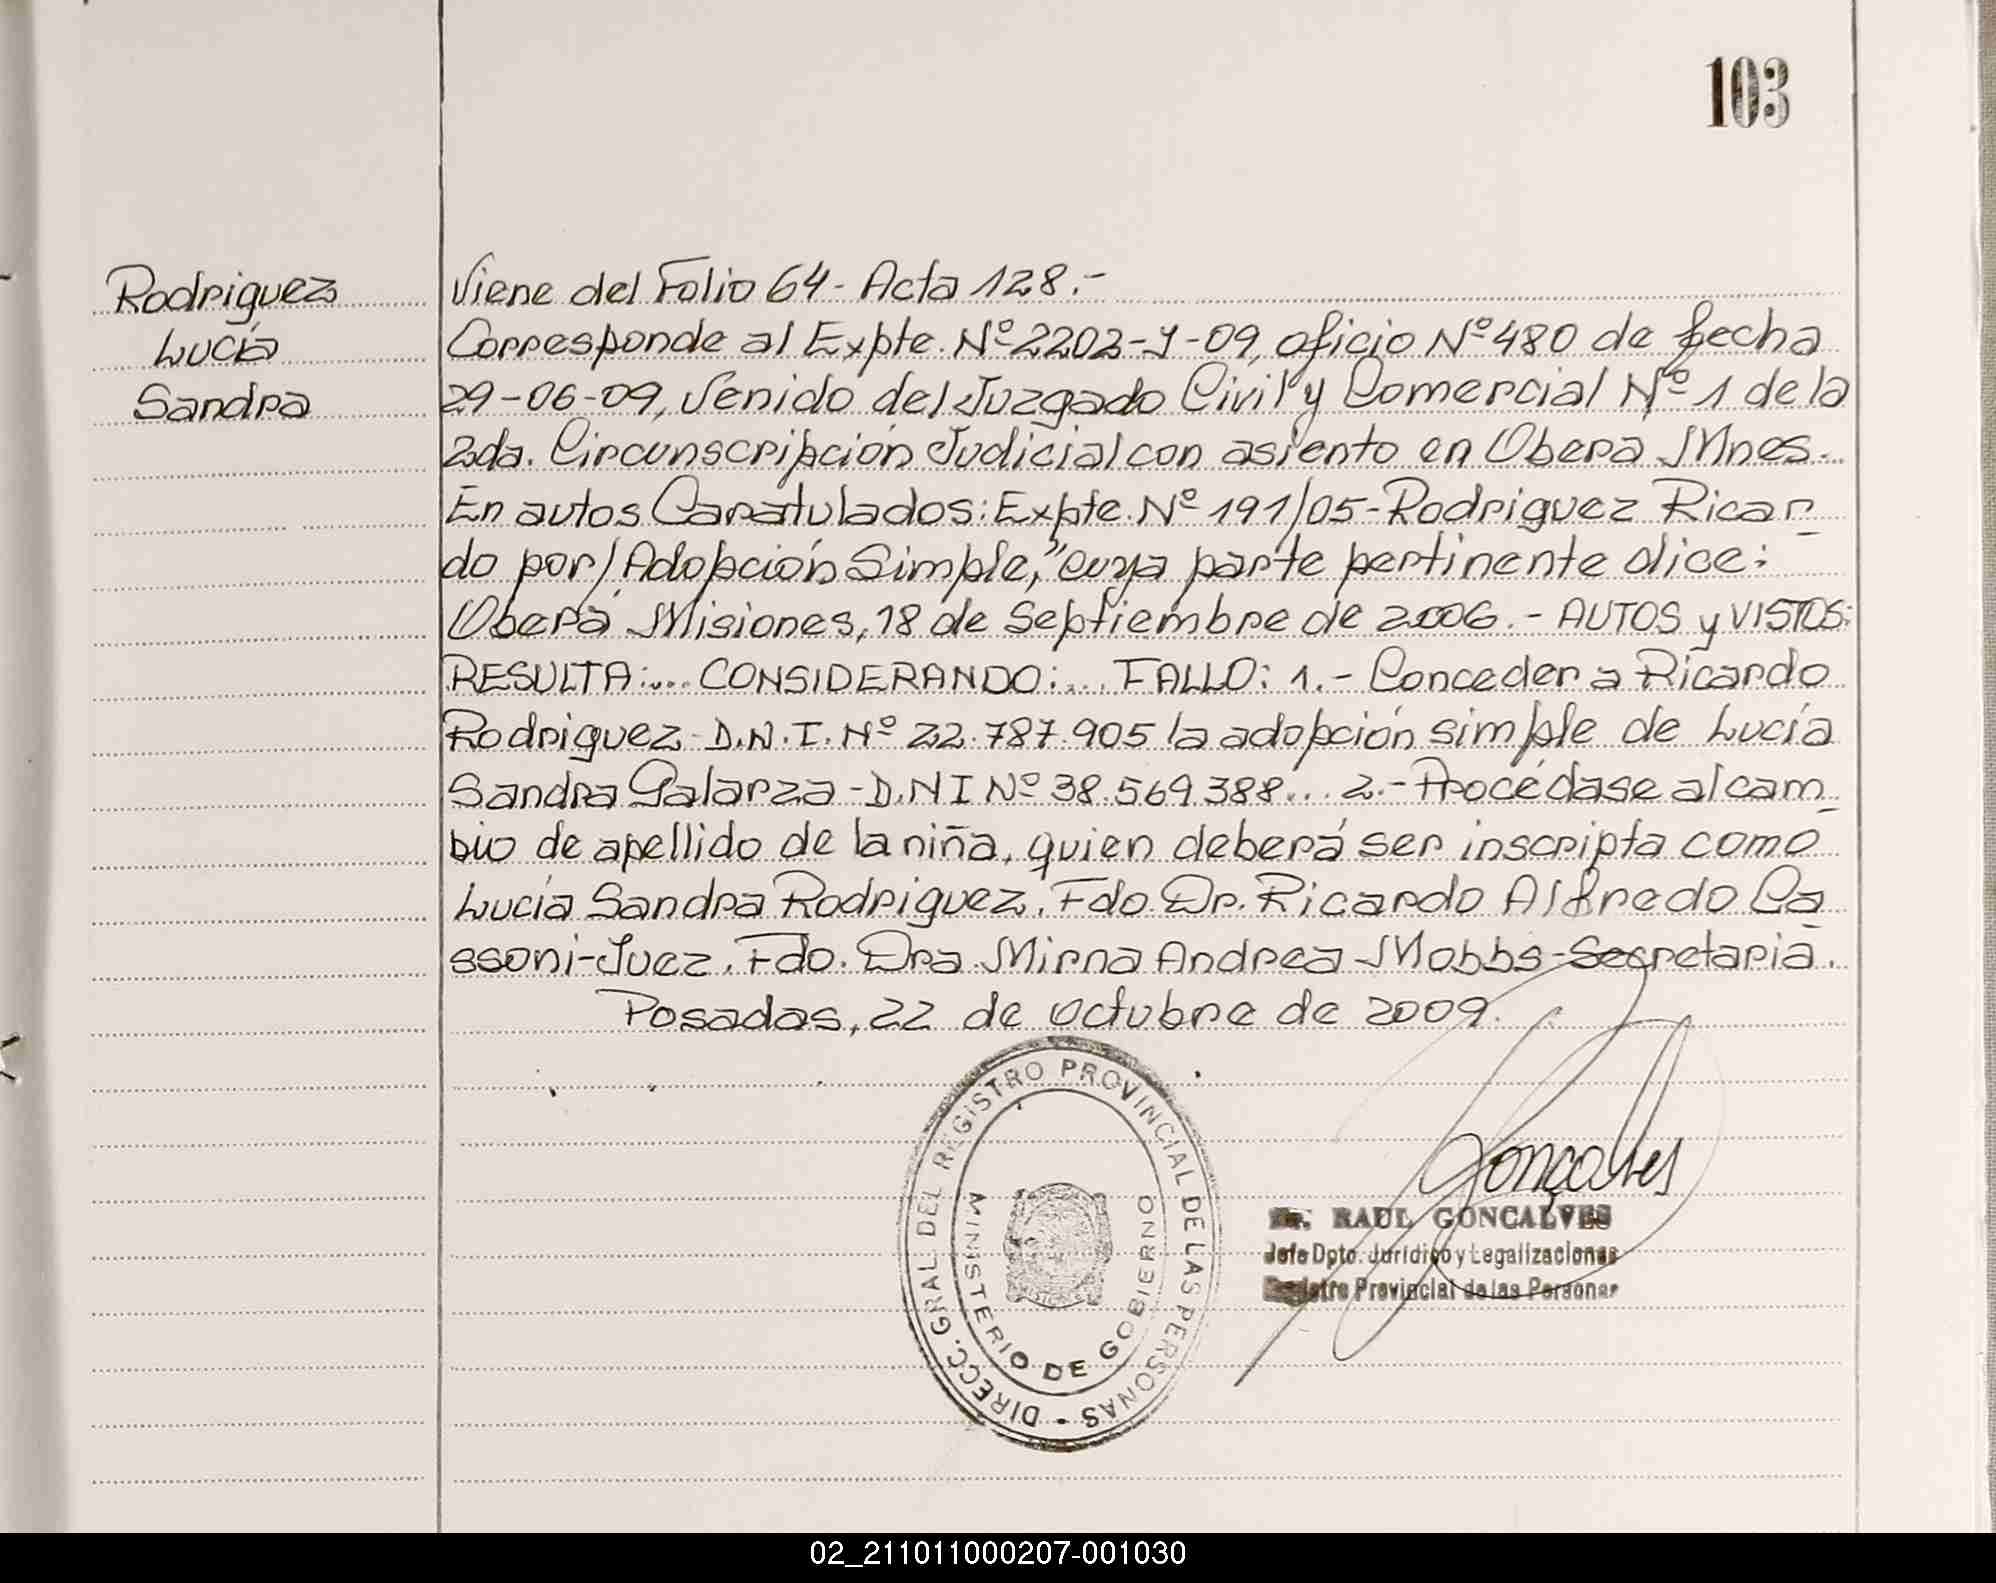 103
Rodriguez
Lucía
Sandra
Viene del Folio 64 - Acta 128.-
Corresponde al Expte. Nº 2202-J-09, oficio Nº 480 de fecha
29-06-09, Venido del Juzgado Civil y Comercial Nº 1 de la
2da. Circunscripción Judicial con asiento en Obera Mnes.
En autos Caratulados: Expte. Nº 191/05-Rodriguez Ricar
do por/Adopción Simple," cuya parte pertinente dice:
Oberá Misiones, 18 de Septiembre de 2006.- AUTOS y VISTOS:
RESULTA:... CONSIDERANDO:... FALLO: 1.- Conceder a Ricardo
Rodriguez D.N.I. Nº 22.787.905 la adopción simple de Lucía
Sandra Galarza - D.N I Nº 38.569.388... 2.- Procédase al cam
bio de apellido de la niña, quien deberá ser inscripta como
Lucía Sandra Rodriguez. Fdo. Dr. Ricardo Alfredo Ca
ssoni-Juez. Fdo. Dra. Mirna Andrea Mobbs-Secretaria.
Posadas, 22 de octubre de 2009.
DIRECC. GRAL. DEL REGISTRO PROVINCIAL DE LAS PERSONAS -
MINISTERIO DE GOBIERNO
Gonçalves
Dr. RAUL GONCALVES
Jefe Dpto. Jurídico y Legalizaciones
Registro Provincial de las Personas
02_211011000207-001030